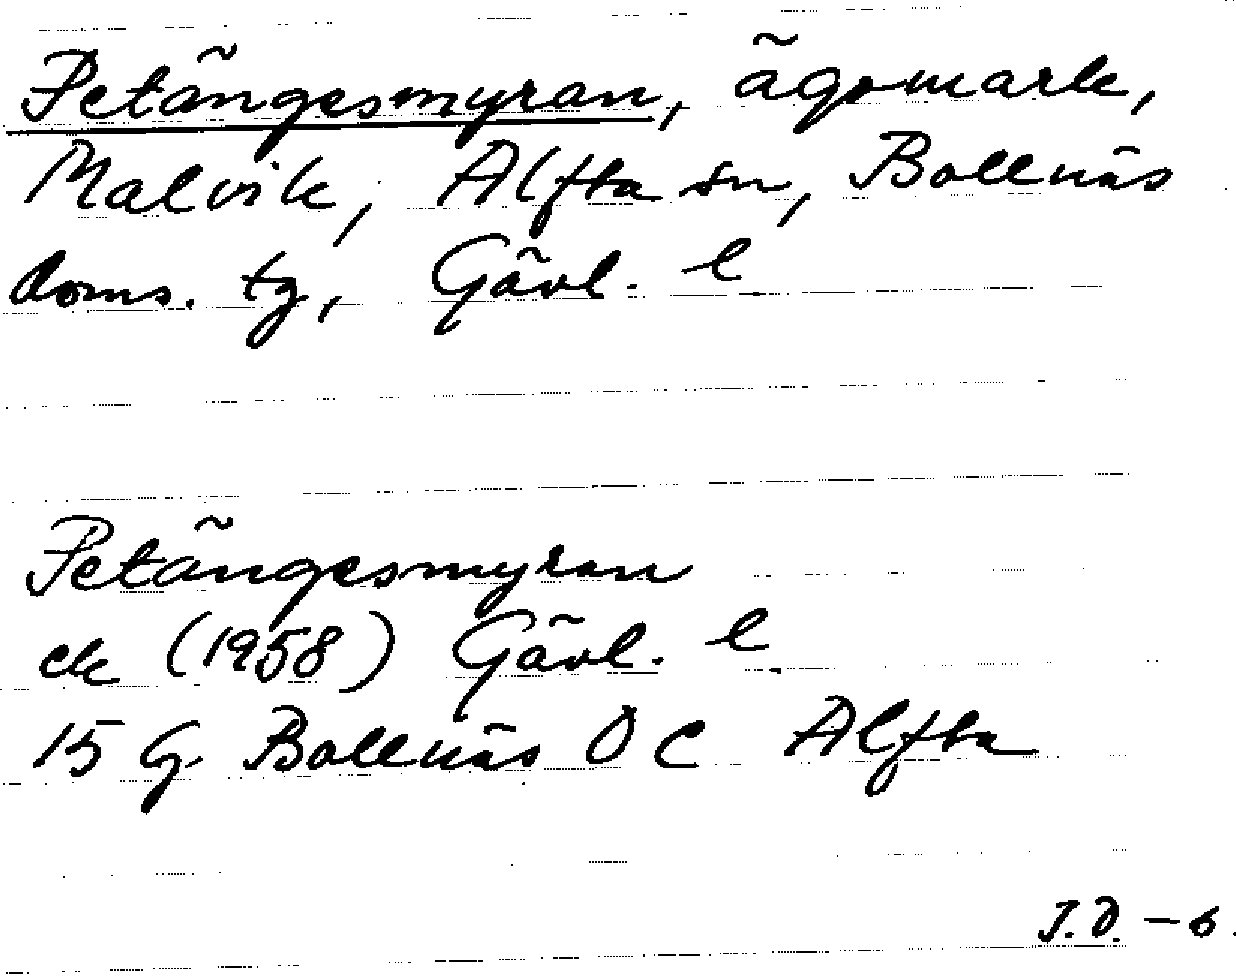 Petängesmyran, ägomark,
Malvik, Alfta sn, Bollnäs
doms. tg, Gävl. l
Petängesmyran
ek (1958) Gävl. l.
15 G Bollnäs 0 c Alfta
J.D. -6.